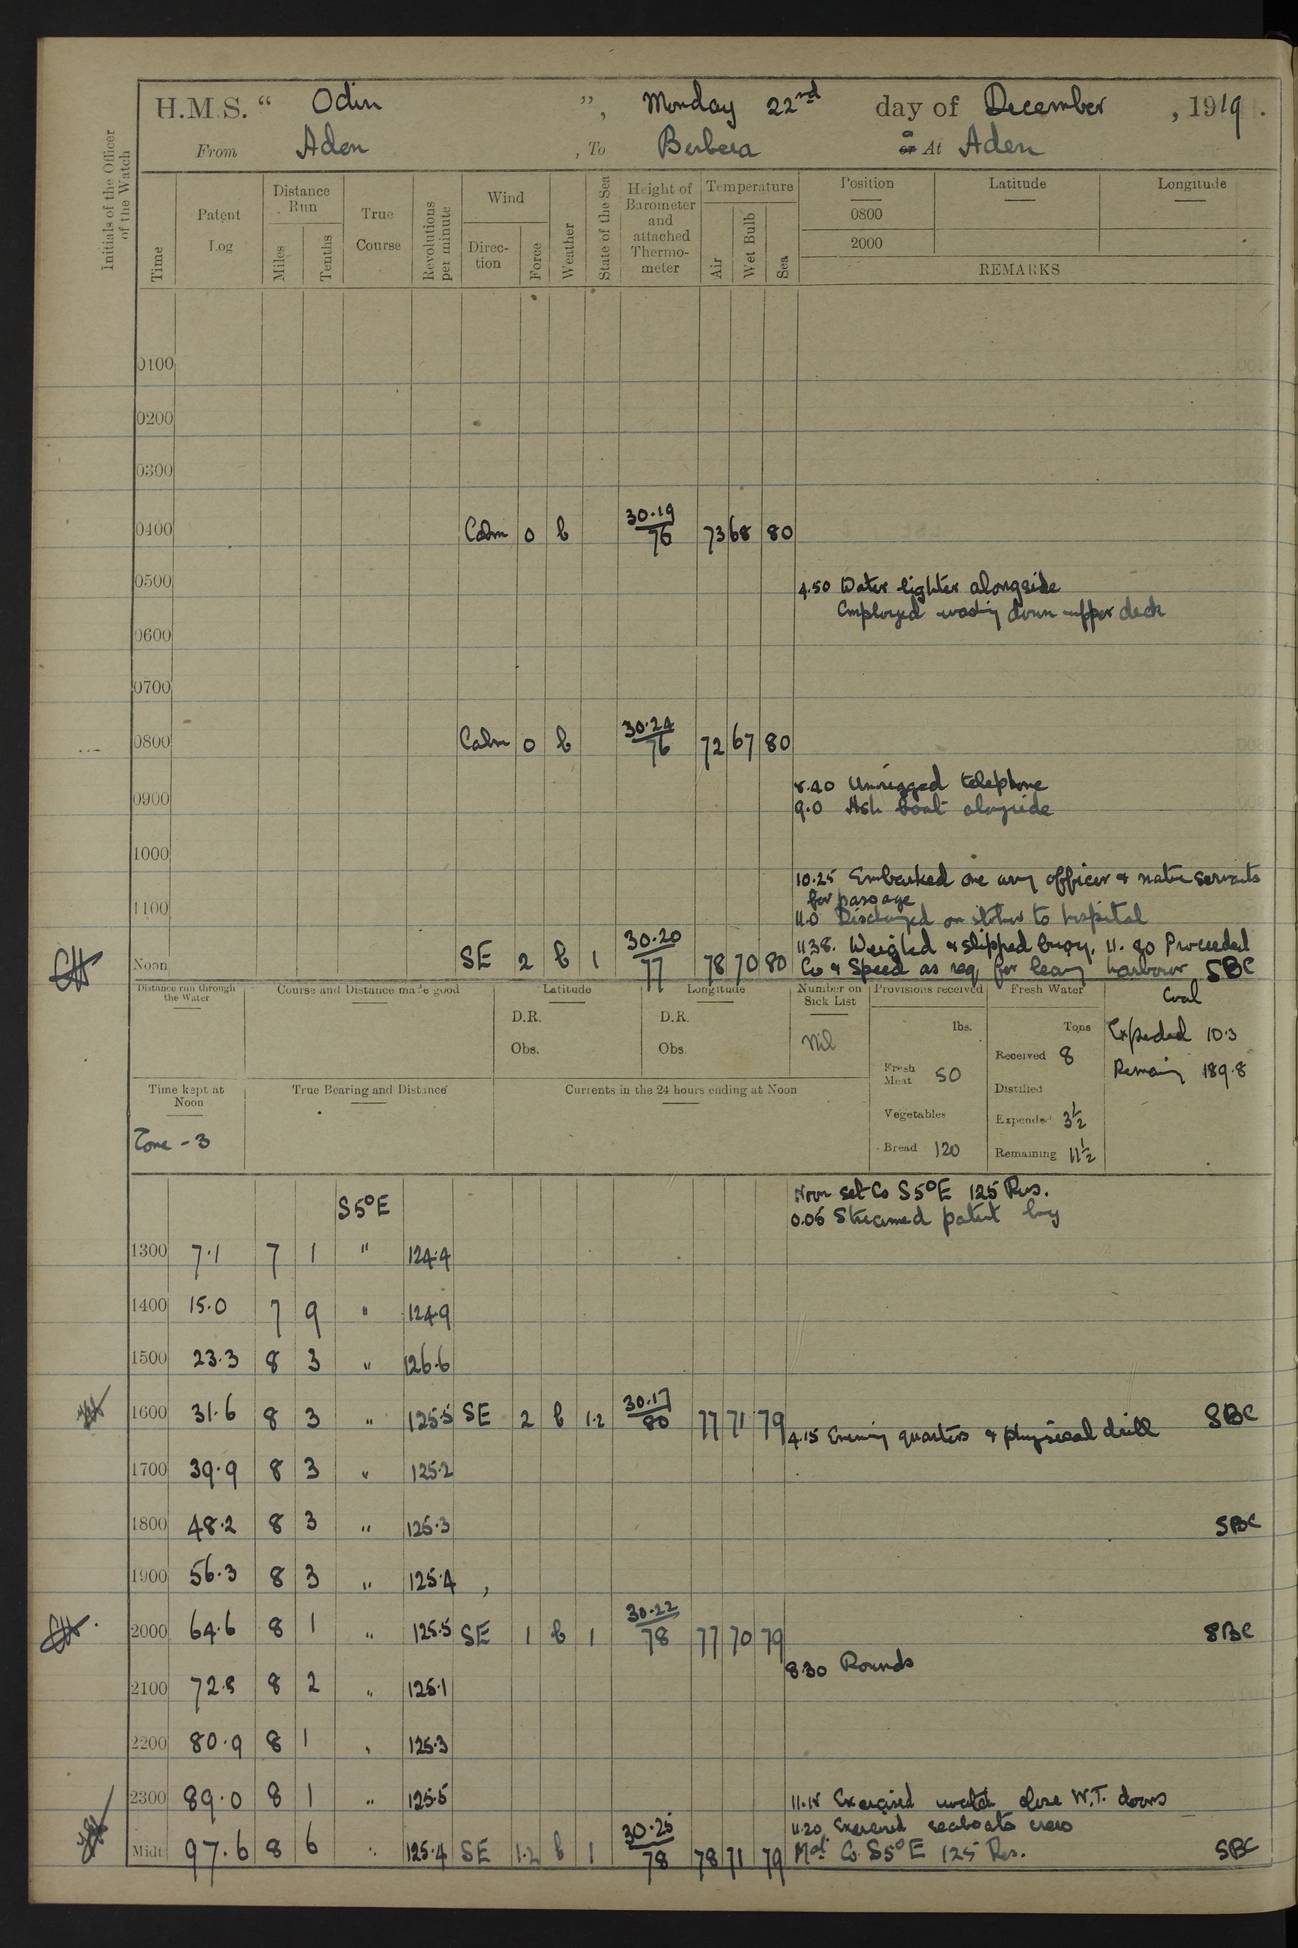 H.M.S. “ Odin ”, Monday 22nd day of December , 1919 .
From Aden , To Berbera & or At Aden
Initials of the Officer of the Watch
Time Patent Log Distance Run Miles Tenths True Course Revolutions per minute Wind Direc-tion Force Weather State of the Sea Height of Barometer and attached Thermo-meter Temperature Air Wet Bulb Sea Position Latitude Longitude
0800
2000
REMARKS
0100
0200
0300
0400 Calm 0 b 30.19 76 73 68 80
0500 4.50 Water lighter alongside
Employed washing down upper deck
0600
0700
0800 Calm 0 b 30.24 76 72 67 80
8.40 Unrigged telephone
0900 9.0 Ash boat alongside
1000
10.25 Embarked one army officer & native servants
for passage
1100 11.0 Discharged one stoker to hospital
11.38. Weighed & slipped buoy. 11.80 Proceeded
Noon SE 2 b 1 30.20 77 78 70 80 Co & Speed as req for leaving harbour SBC
Distance run through the Water Course and Distance made good Latitude Longitude Number on Sick List Provisions received Fresh Water Coal
D.R. D.R. lbs. Tons Expended 10.3
Obs. Obs. Nil Received 8 Remaing 189.8
Fresh Meat 50 Distilled
Time kept at Noon True Bearing and Distance Currents in the 24 hours ending at Noon
Vegetables Expended 3½
Zone -3 Bread 120 Remaining 11½
S5°E Noon set Co S5°E 125 Revs.
0.06 Streamed patent log
1300 7.1 7 1 " 124.4
1400 15.0 7 9 " 124.9
1500 23.3 8 3 " 126.6
1600 31.6 8 3 " 125.5 SE 2 b 1.2 30.17 80 77 71 79 SBC
4.15 Evening quarters & physical drill
1700 39.9 8 3 " 125.2
1800 48.2 8 3 " 125.3 SBC
1900 56.3 8 3 " 125.4
2000 64.6 8 1 " 125.5 SE 1 b 1 30.22 78 77 70 79 SBC
8.30 Rounds
2100 72.8 8 2 " 125.1
2200 80.9 8 1 " 125.3
2300 89.0 8 1 " 125.5 11.15 Exercised watch close W.T. doors
11.20 Exercised seaboats crew
Midt 97.6 8 6 " 125.4 SE 1.2 b 1 30.25 78 78 71 79 Mdt Co S5°E 125 Rs. SBC